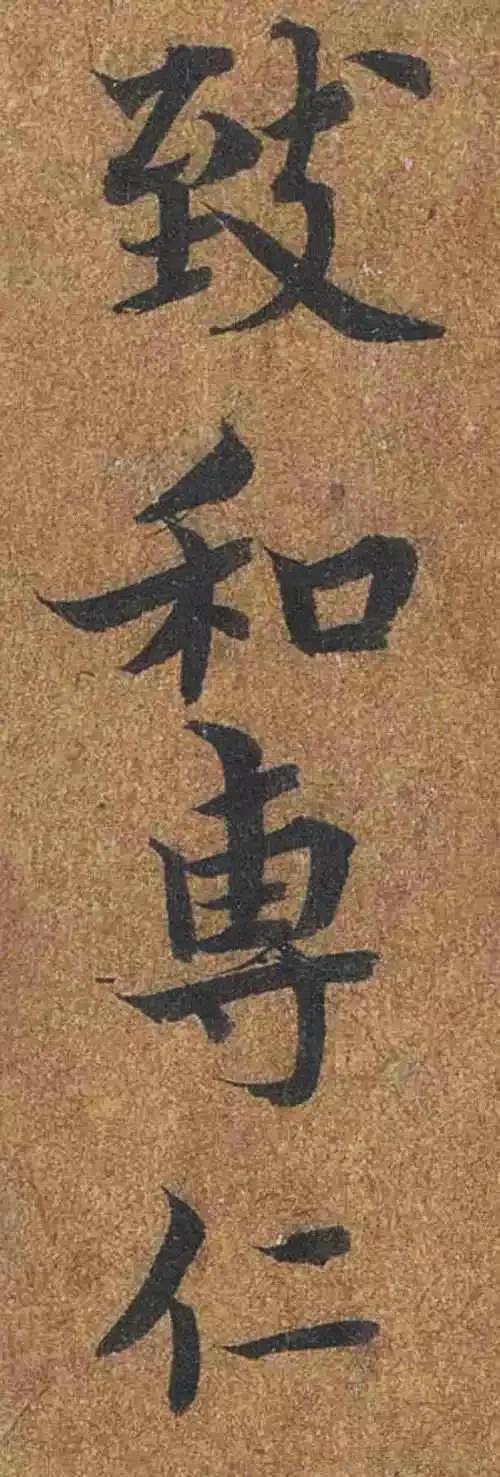 致和專仁